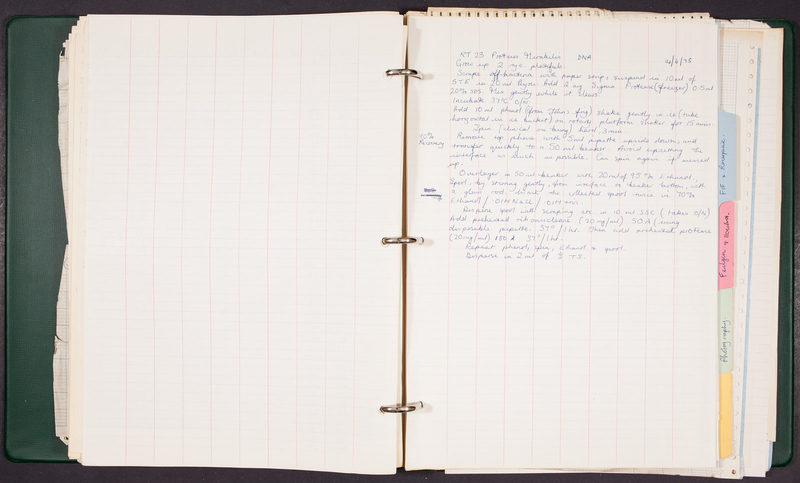 RT 23 Proteus Mirabilis DNA 4/4/75
Grow up 2 agar platefuls.
Scrape off bacteria with paper strip, suspend in 10 ml of
STE in 20 ml Add 2 mg Sigma Protease (freezer) 0.5 ml
20% SDS. Mix gently while it clears
Incubate 37°C O/N.
Add 10 ml phenol (from John's frig) shake gently in ice (tube
horizontal in ice bucket) on rotary platform shaker for 15 mins.
Spin (clinical on being) hard 3 min.
70%
Recovery
Remove top phase with 5 ml pipette upside down, and
transfer quickly to a 50 ml beaker. Avoid upsetting the
interface as much as possible. Can spin again if messed
up.
Overlayer in 50 ml beaker with 20 ml of 95% Ethanol,
Spool, by stirring gently, from interface to beaker bottom, with
a glass rod, the collected spool twice in 70%
Ethanol / .01M NaCl / .01M
Disperse spool with scraping etc in 10 ml SSC (takes O/N)
Add preheated ribonuclease (20 mg/ml) 50 λ (using
disposable pipette. 37° / 1 hr. Then add preheated protease
(20 mg/ml) 150 λ 37° / 1 hr.
Repeat phenol, spin, Ethanol & spool.
Disperse in 2 ml of TS.
Feulgen &
Photography